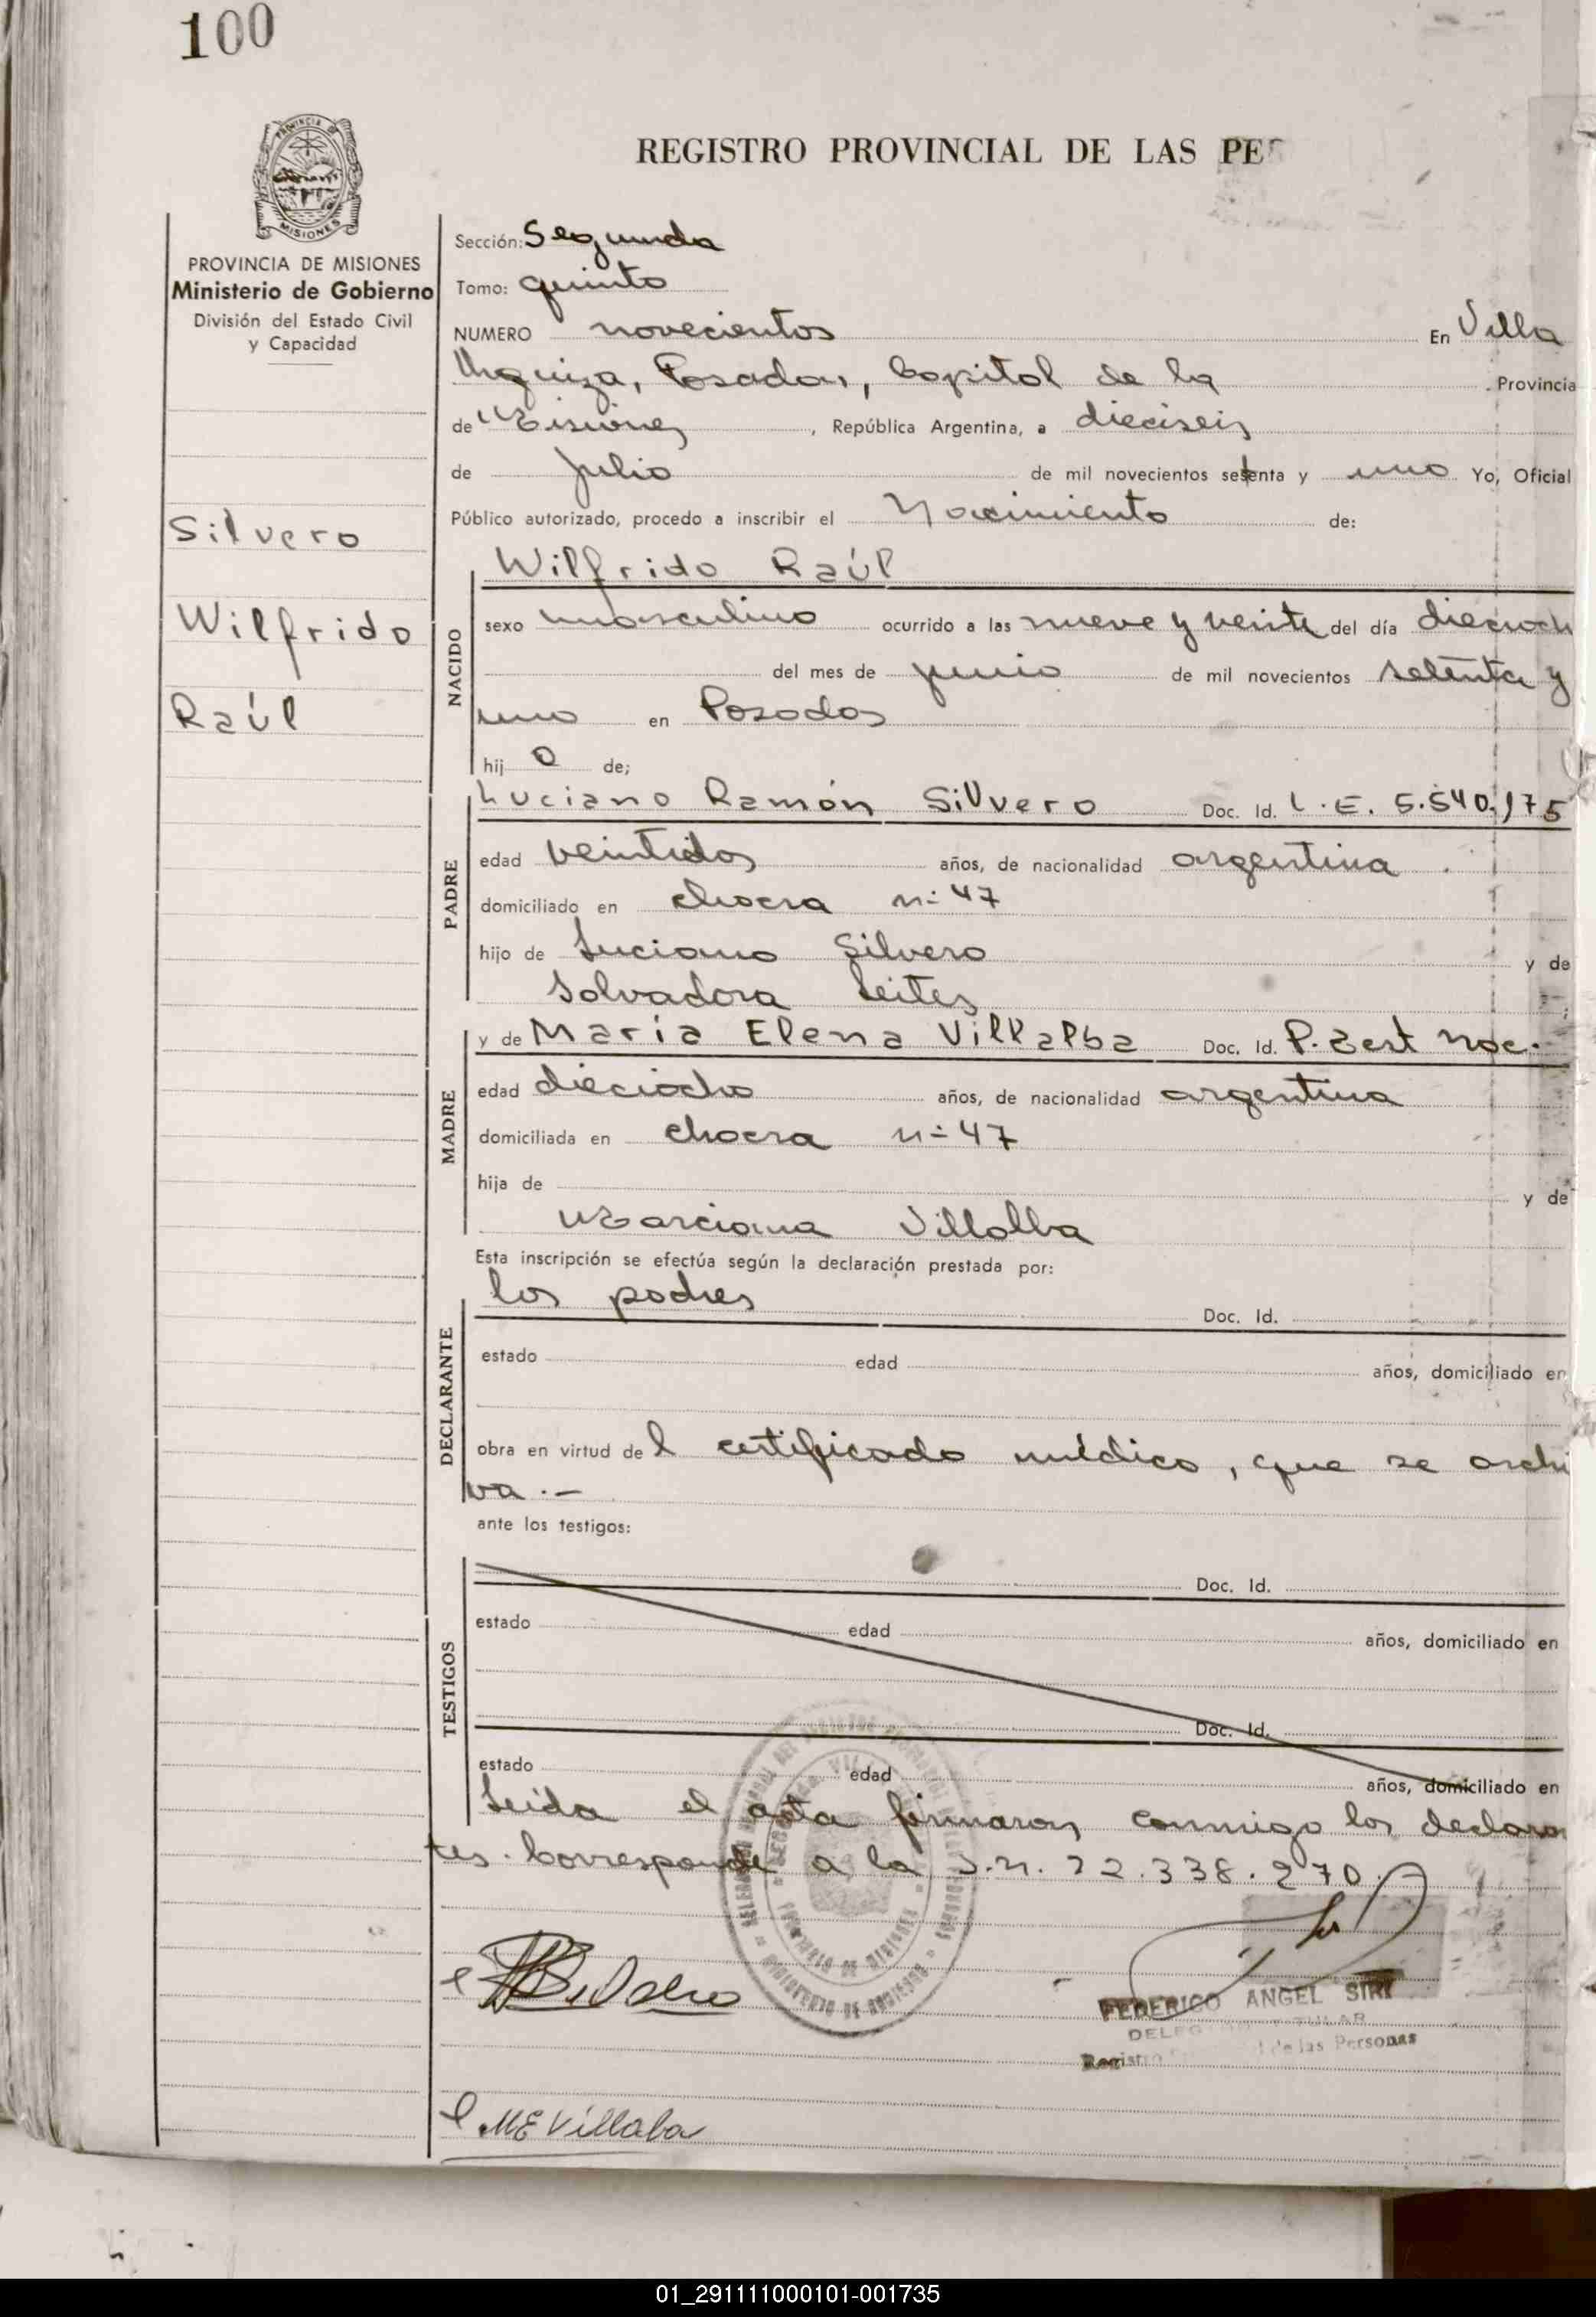 100
PROVINCIA DE MISIONES
REGISTRO PROVINCIAL DE LAS PE
PROVINCIA DE MISIONES
Ministerio de Gobierno
División del Estado Civil
y Capacidad
Silvero
Wilfrido
Raúl
Sección: Segunda
Tomo: quinto
NUMERO novecientos En Villa
Urquiza, Posadas, Capital de la Provincia
de Misiones, República Argentina, a dieciseis
de Julio de mil novecientos setenta y uno Yo, Oficial
Público autorizado, procedo a inscribir el Nacimiento de:
Wilfrido Raúl
NACIDO
sexo masculino ocurrido a las nueve y veinte del día diecioch
del mes de junio de mil novecientos setenta y
uno en Posadas
hij o de;
PADRE
Luciano Ramón Silvero Doc. Id. L.E. 5.540.175
edad veintidos años, de nacionalidad argentina
domiciliado en chacra n= 47
hijo de Luciano Silvero y de
Salvadora Leites
MADRE
y de María Elena Villalba Doc. Id. P. Cert Nac.
edad dieciocho años, de nacionalidad argentina
domiciliada en chacra n= 47
hija de y de
Marciana Villalba
Esta inscripción se efectúa según la declaración prestada por:
DECLARANTE
los padres Doc. Id.
estado edad años, domiciliado en
obra en virtud del certificado médico, que se archi
va.-
ante los testigos:
TESTIGOS
Doc. Id.
estado edad años, domiciliado en
Doc. Id.
estado edad años, domiciliado en
Leída el acta firmaron conmigo los declaran
tes. Corresponde a la 22.338.270.
FEDERICO ANGEL SIRI
Registro de las Personas
ME Villalba
01_291111000101-001735